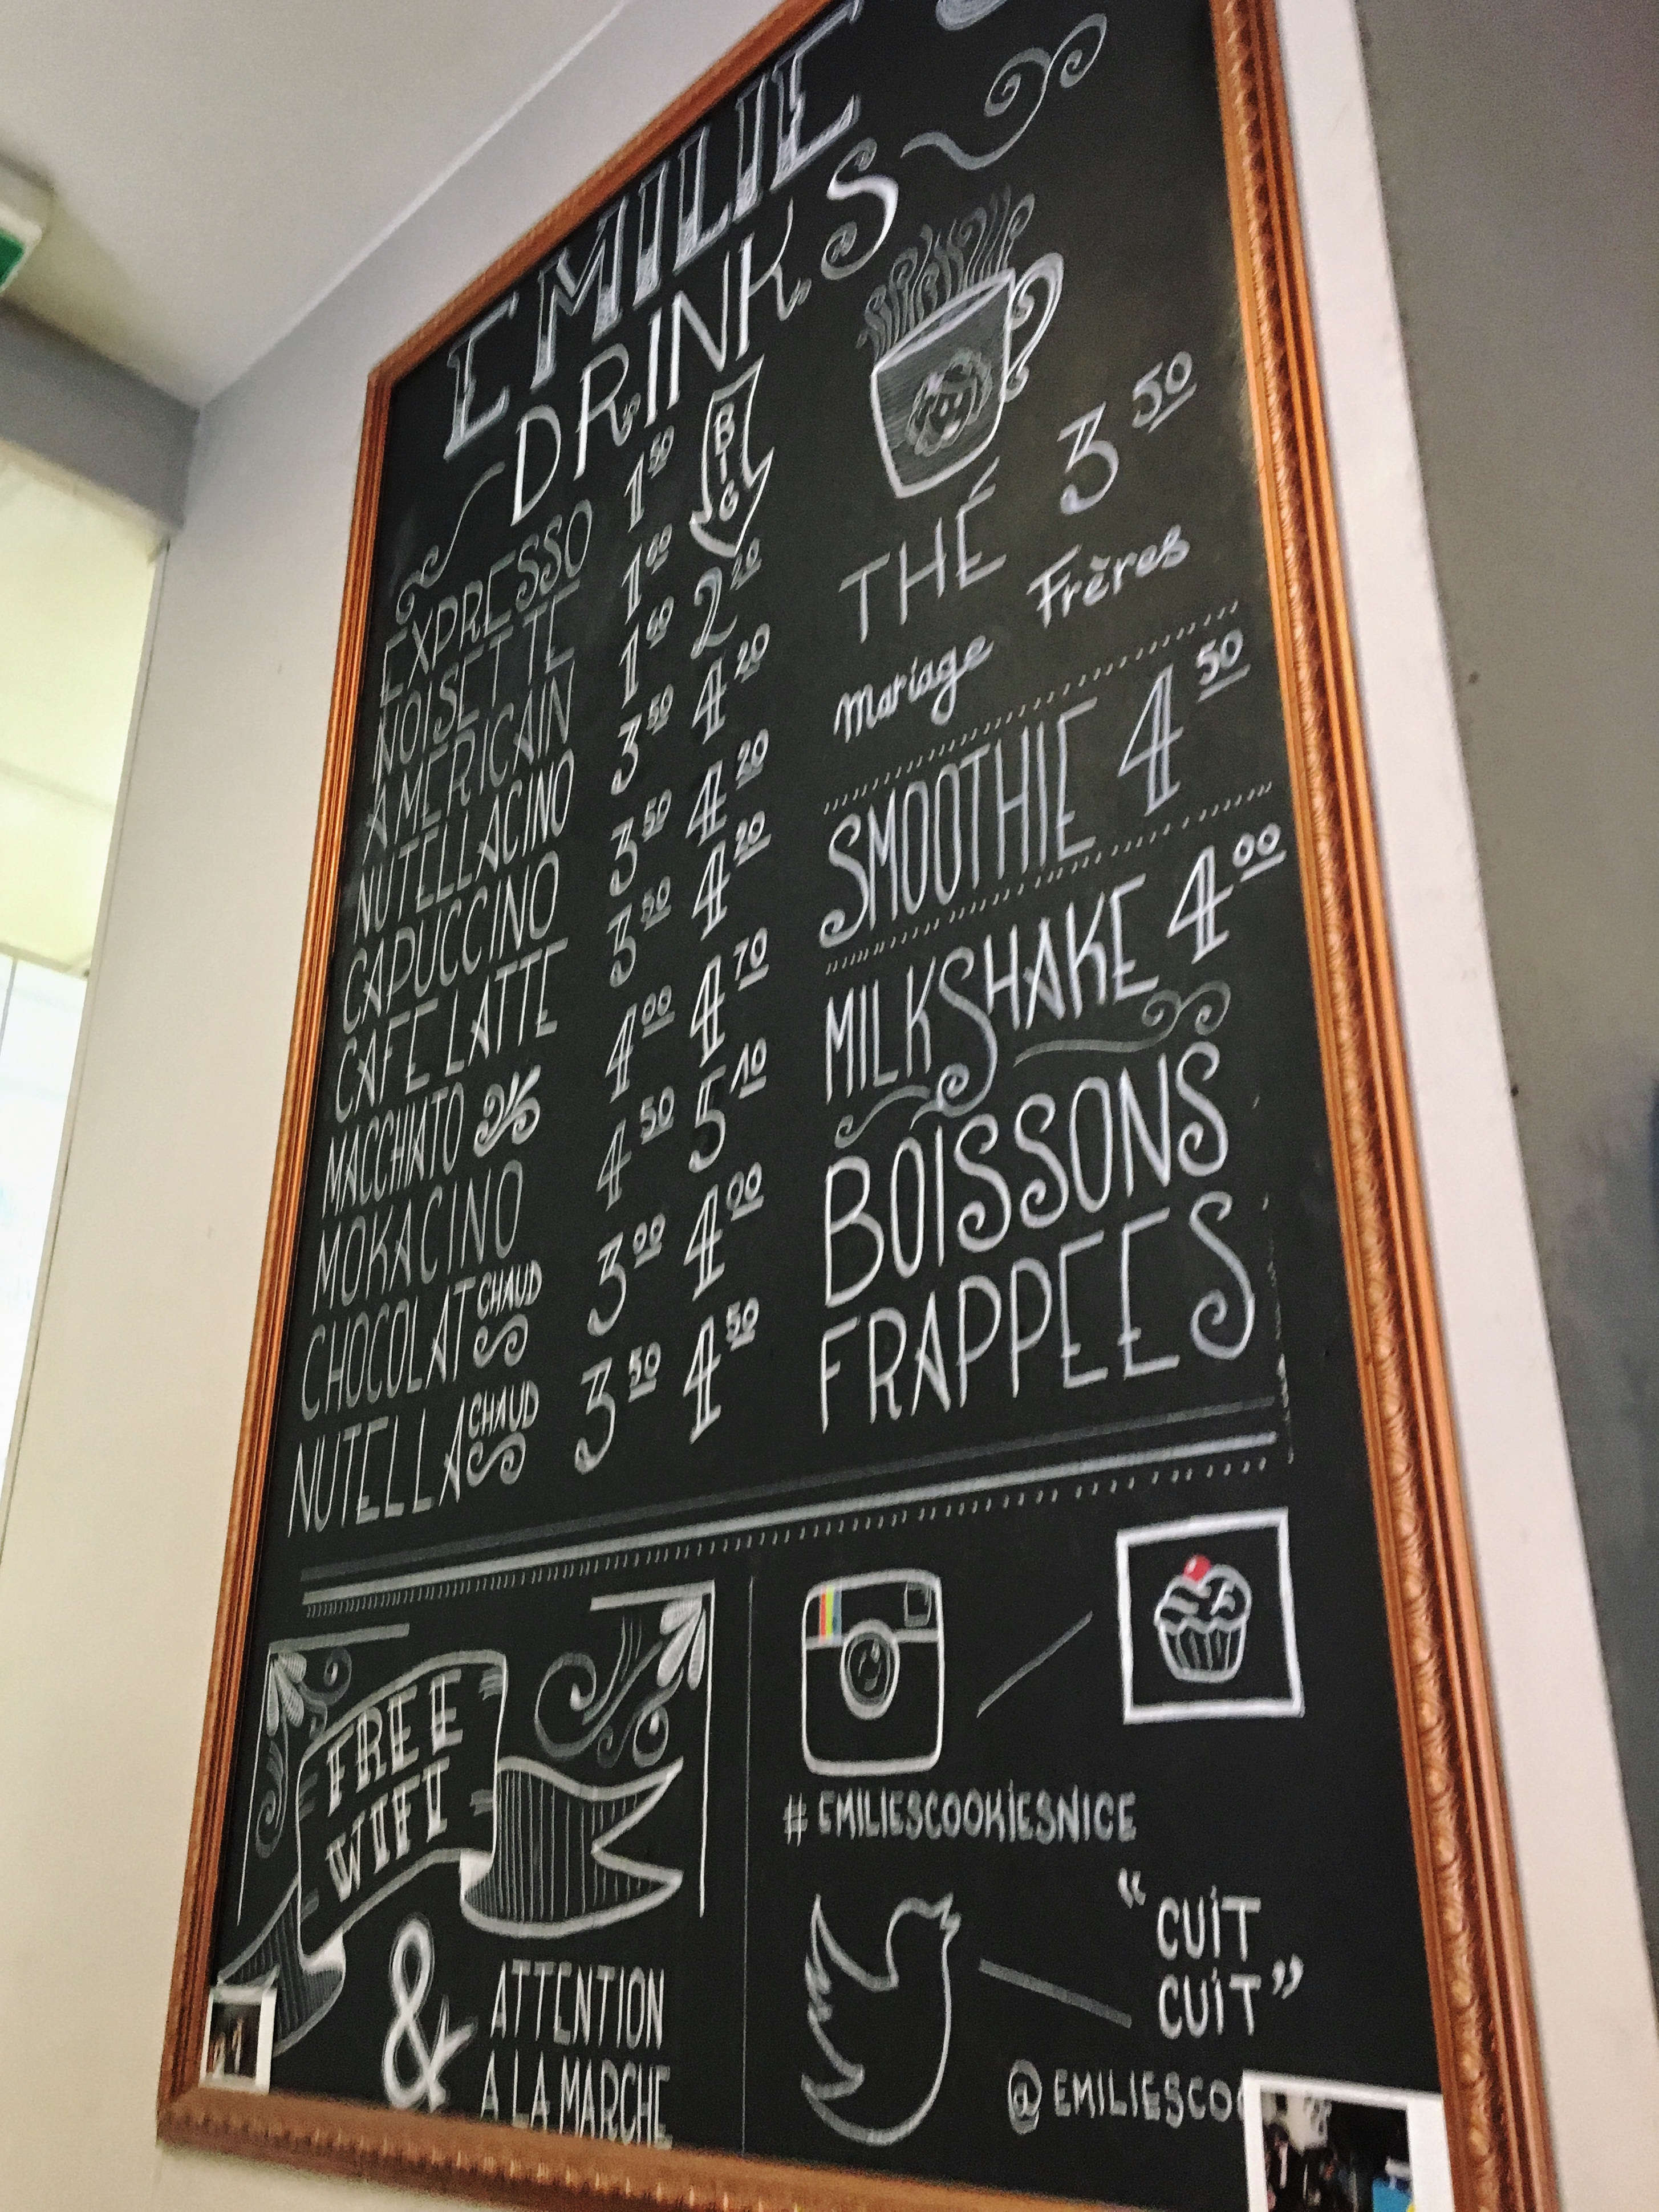 EMILIE
DRINKS
BIG
EXPRESSO 1 50
NOISETTE 1 60
AMERICAIN 1 60 2 20
NUTELLACINO 3 50 4 20
CAPUCCINO 3 50 4 20
CAFE LATTE 3 50 4 20
MACCHIATO 4 00 4 70
MOKACINO 4 50 5 10
CHOCOLAT CHAUD 3 00 4 00
NUTELLA CHAUD 3 50 4 50
THÉ 3 50
Mariage Frères
SMOOTHIE 4 50
MILKSHAKE 4 00
BOISSONS
FRAPPEES
FREE
WIFI
&
ATTENTION
A LA MARCHE
#EMILIESCOOKIESNICE
"CUIT
CUIT"
@EMILIESCO